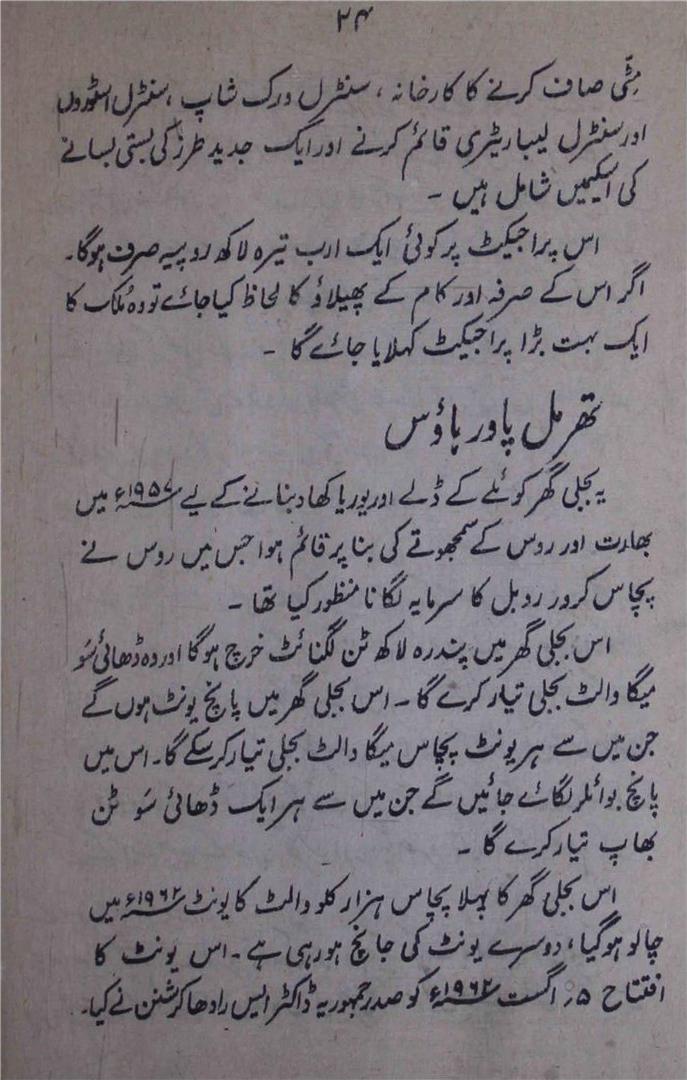 ۲۴
مٹّی صاف کرنے کا کارخانہ، سنٹرل ورک شاپ، سنٹرل اسٹوروں
اور سنٹرل لیباریٹری قائم کرنے اور ایک جدید طرز کی بستی بسانے
کی اسکیمیں شامل ہیں ۔
اس پراجیکٹ پر کوئی ایک ارب تیرہ لاکھ روپیہ صرف ہوگا۔
اگر اس کے صرفہ اور کام کے پھیلاؤ کا لحاظ کیا جائے تو وہ مُلک کا
ایک بہت بڑا پراجیکٹ کہلایا جائے گا ۔
تھرمل پاور ہاؤس
یہ بجلی گھر کوئلے کے ڈلے اور یوریا کھاد بنانے کے لیے ۱۹۵۷ء میں
بھارت اور روس کے سمجھوتے کی بنا پر قائم ہوا جس میں روس نے
پچاس کرور روبل کا سرمایہ لگانا منظور کیا تھا ۔
اس بجلی گھر میں پندرہ لاکھ ٹن لگنائٹ خرچ ہوگا اور وہ ڈھائی سَو
میگا والٹ بجلی تیار کرے گا ۔ اس بجلی گھر میں پانچ یونٹ ہوں گے
جن میں سے ہر یونٹ پچاس میگا والٹ بجلی تیار کرسکے گا۔ اس میں
پانچ بوائلر لگائے جائیں گے جن میں سے ہر ایک ڈھائی سَو ٹن
بھاپ تیار کرے گا ۔
اس بجلی گھر کا پہلا پچاس ہزار کلو والٹ کا یونٹ ۱۹۶۲ء میں
چالو ہوگیا، دوسرے یونٹ کی جانچ ہورہی ہے ۔ اس یونٹ کا
افتتاح ۵؍ اگست ۱۹۶۲ء کو صدر جمہوریہ ڈاکٹر ایس رادھا کرشنن نے کیا۔